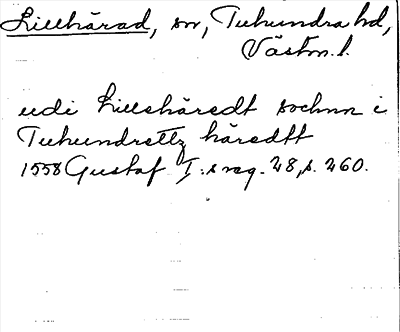 Lillhärad, sn, Tuhundra hd,
Västm. l.
udi Lilleheredt sochnn i
Tuhundrettz häredtt
1558 Gustaf I:s reg. 28, s. 260.